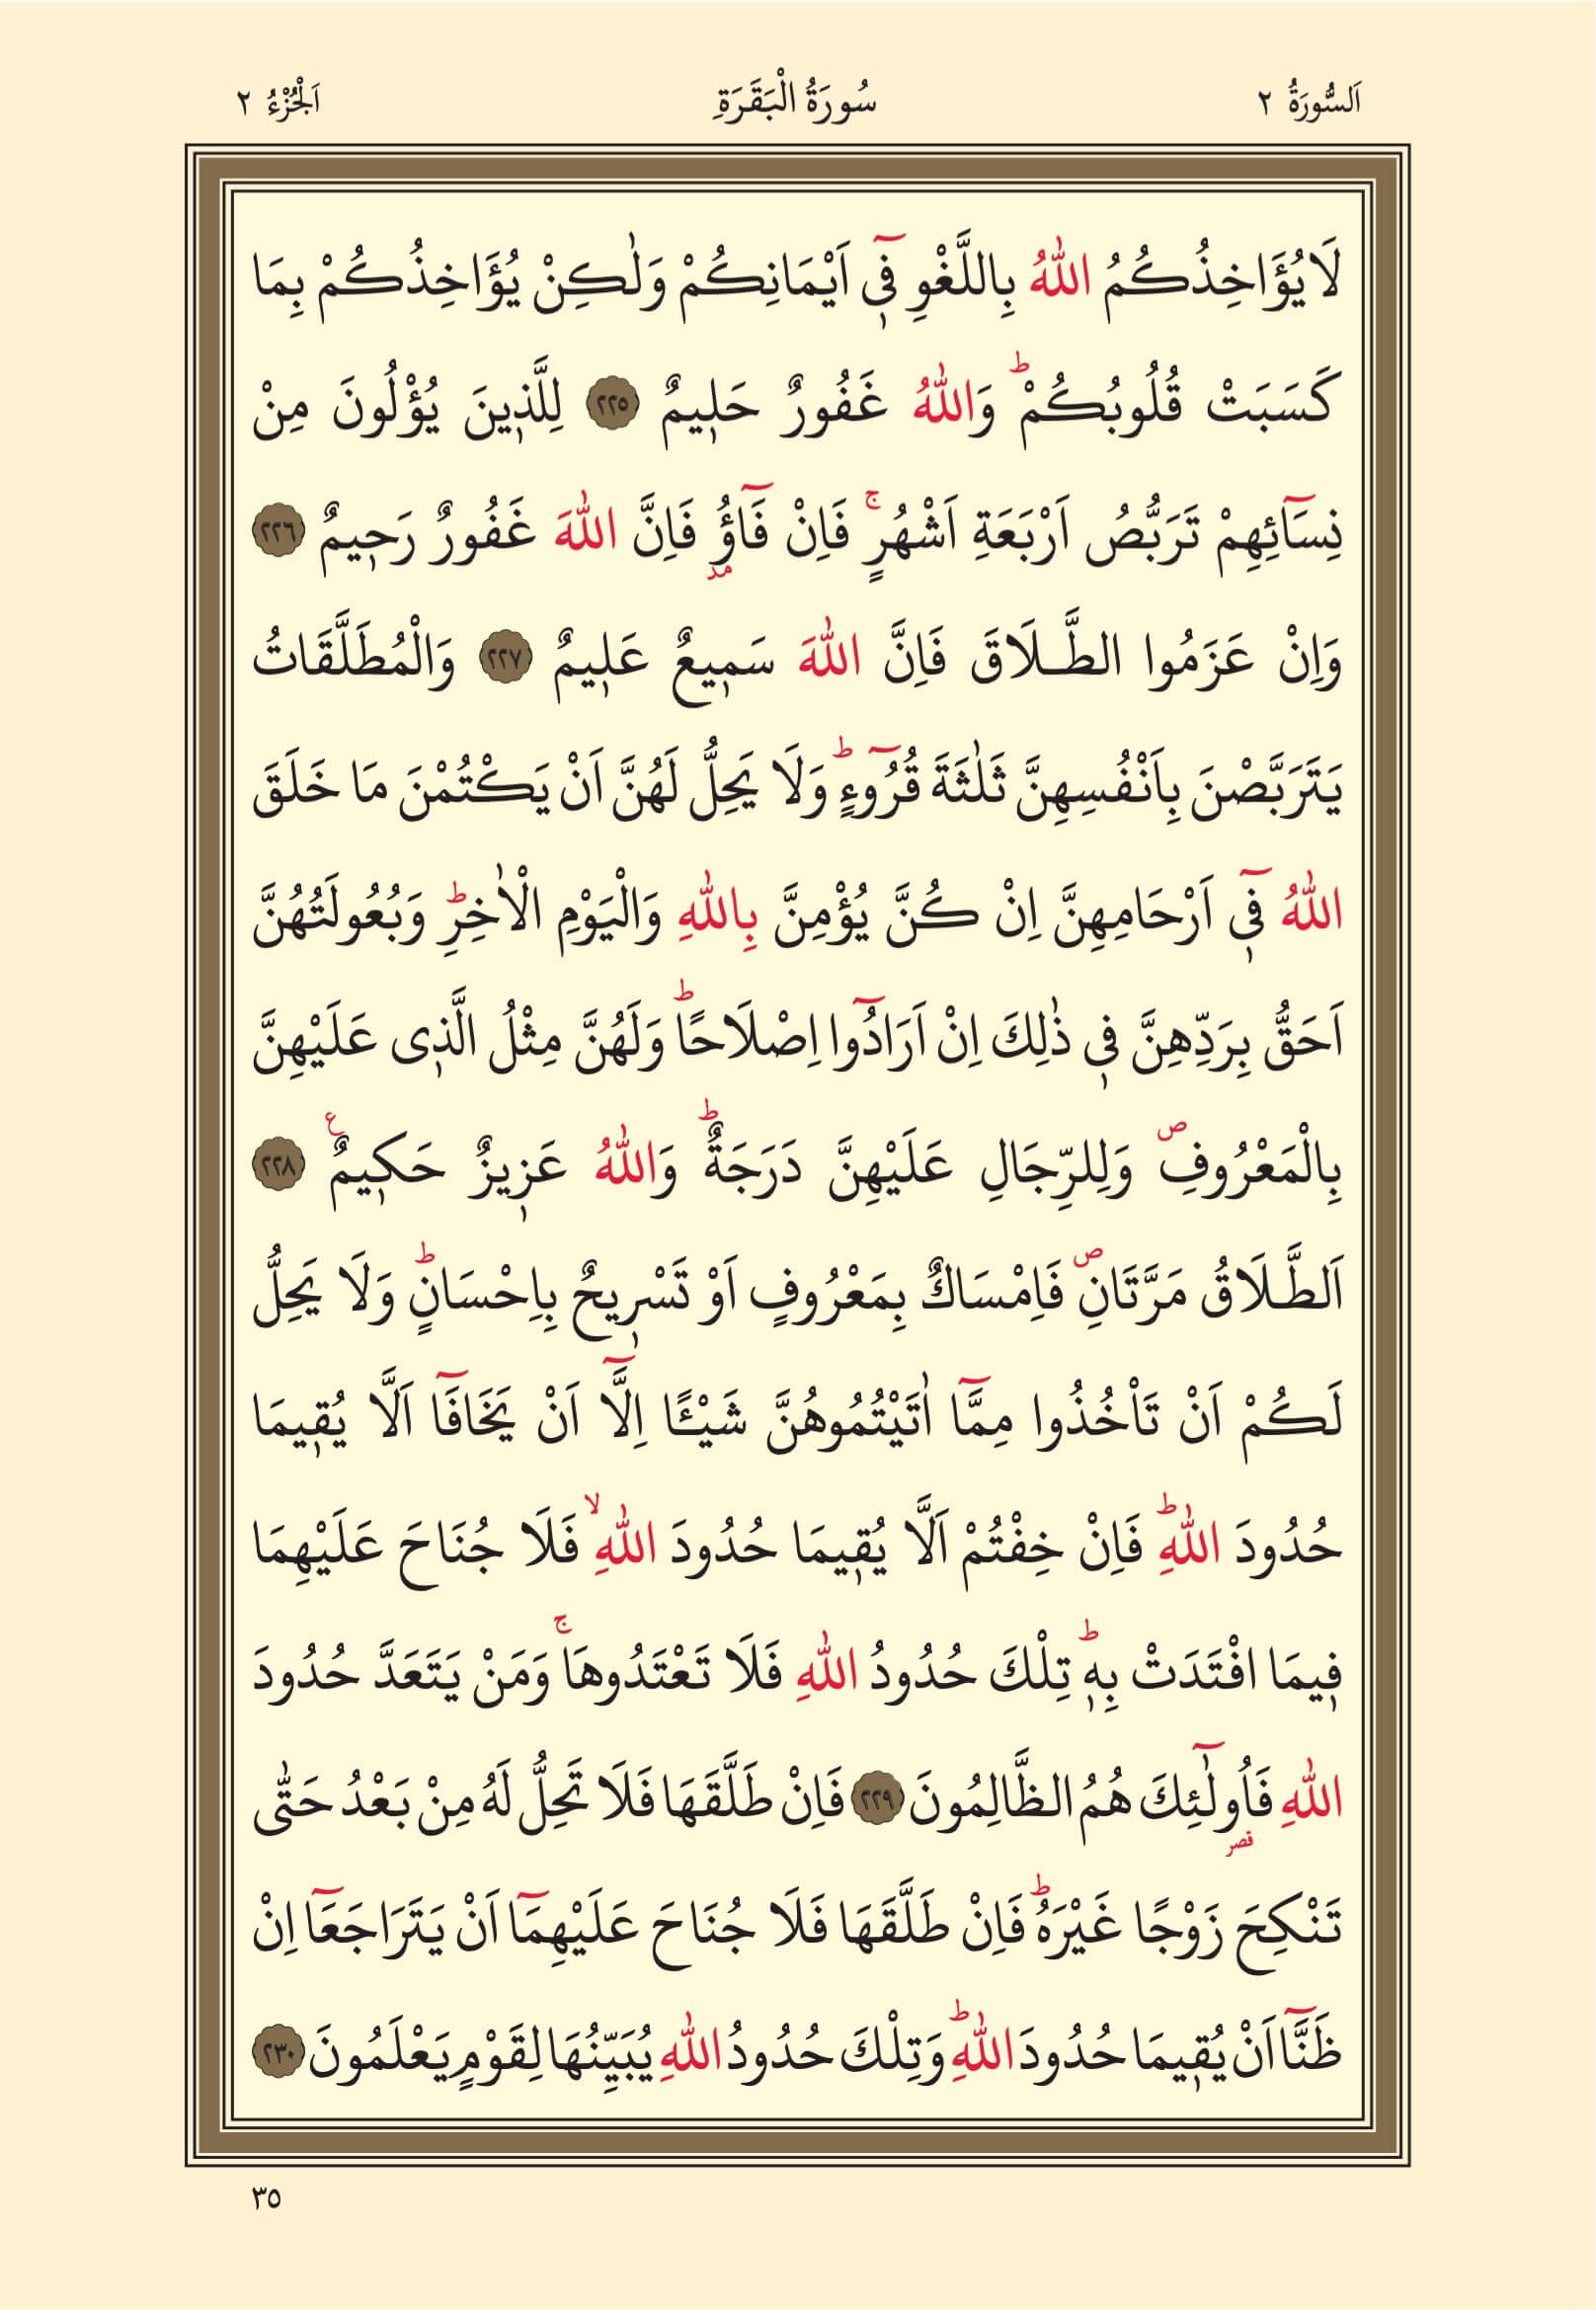 اَلسُّورَةُ ٢ سُورَةُ الْبَقَرَةِ اَلْجُزْءُ ٢
لَا يُؤَاخِذُكُمُ اللّٰهُ بِاللَّغْوِ فٖٓي اَيْمَانِكُمْ وَلٰكِنْ يُؤَاخِذُكُمْ بِمَا
كَسَبَتْ قُلُوبُكُمْؕ وَاللّٰهُ غَفُورٌ حَلٖيمٌ ٢٢٥ لِلَّذٖينَ يُؤْلُونَ مِنْ
نِسَٓائِهِمْ تَرَبُّصُ اَرْبَعَةِ اَشْهُرٍۚ فَاِنْ فَٓاؤُ۫ مد فَاِنَّ اللّٰهَ غَفُورٌ رَحٖيمٌ ٢٢٦
وَاِنْ عَزَمُوا الطَّلَاقَ فَاِنَّ اللّٰهَ سَمٖيعٌ عَلٖيمٌ ٢٢٧ وَالْمُطَلَّقَاتُ
يَتَرَبَّصْنَ بِاَنْفُسِهِنَّ ثَلٰثَةَ قُرُٓوءٍؕ وَلَا يَحِلُّ لَهُنَّ اَنْ يَكْتُمْنَ مَا خَلَقَ
اللّٰهُ فٖٓي اَرْحَامِهِنَّ اِنْ كُنَّ يُؤْمِنَّ بِاللّٰهِ وَالْيَوْمِ الْاٰخِرِؕ وَبُعُولَتُهُنَّ
اَحَقُّ بِرَدِّهِنَّ فٖي ذٰلِكَ اِنْ اَرَادُٓوا اِصْلَاحًاؕ وَلَهُنَّ مِثْلُ الَّذٖى عَلَيْهِنَّ
بِالْمَعْرُوفِࣕ وَلِلرِّجَالِ عَلَيْهِنَّ دَرَجَةٌؕ وَاللّٰهُ عَزٖيزٌ حَكٖيمٌ ع ٢٢٨
اَلطَّلَاقُ مَرَّتَانِ ص فَاِمْسَاكٌ بِمَعْرُوفٍ اَوْ تَسْرٖيحٌ بِاِحْسَانٍؕ وَلَا يَحِلُّ
لَكُمْ اَنْ تَأْخُذُوا مِمَّٓا اٰتَيْتُمُوهُنَّ شَيْـًٔا اِلَّٓا اَنْ يَخَافَٓا اَلَّا يُقٖيمَا
حُدُودَ اللّٰهِؕ فَاِنْ خِفْتُمْ اَلَّا يُقٖيمَا حُدُودَ اللّٰهِۙ فَلَا جُنَاحَ عَلَيْهِمَا
فٖيمَا افْتَدَتْ بِهٖؕ تِلْكَ حُدُودُ اللّٰهِ فَلَا تَعْتَدُوهَاۚ وَمَنْ يَتَعَدَّ حُدُودَ
اللّٰهِ فَاُو۬لٰٓئِكَ قصر هُمُ الظَّالِمُونَ ٢٢٩ فَاِنْ طَلَّقَهَا فَلَا تَحِلُّ لَهُ مِنْ بَعْدُ حَتّٰى
تَنْكِحَ زَوْجًا غَيْرَهُؕ فَاِنْ طَلَّقَهَا فَلَا جُنَاحَ عَلَيْهِمَٓا اَنْ يَتَرَاجَعَٓا اِنْ
ظَنَّٓا اَنْ يُقٖيمَا حُدُودَ اللّٰهِؕ وَتِلْكَ حُدُودُ اللّٰهِ يُبَيِّنُهَا لِقَوْمٍ يَعْلَمُونَ ٢٣٠
٣٥